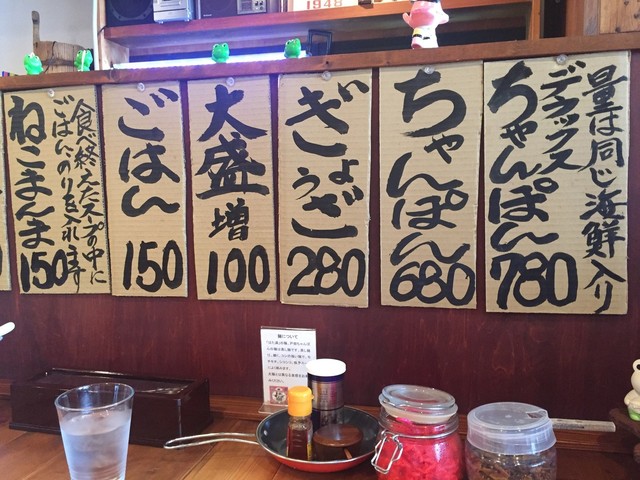 量は同じ海鮮入り
デラックス
ちゃんぽん
780
ちゃんぽん
680
ぎょうざ
280
大盛増
100
ごはん
150
食べ終えたスープの中に
ごはん、のりを入れます
ねこまんま
150
1948
麺について